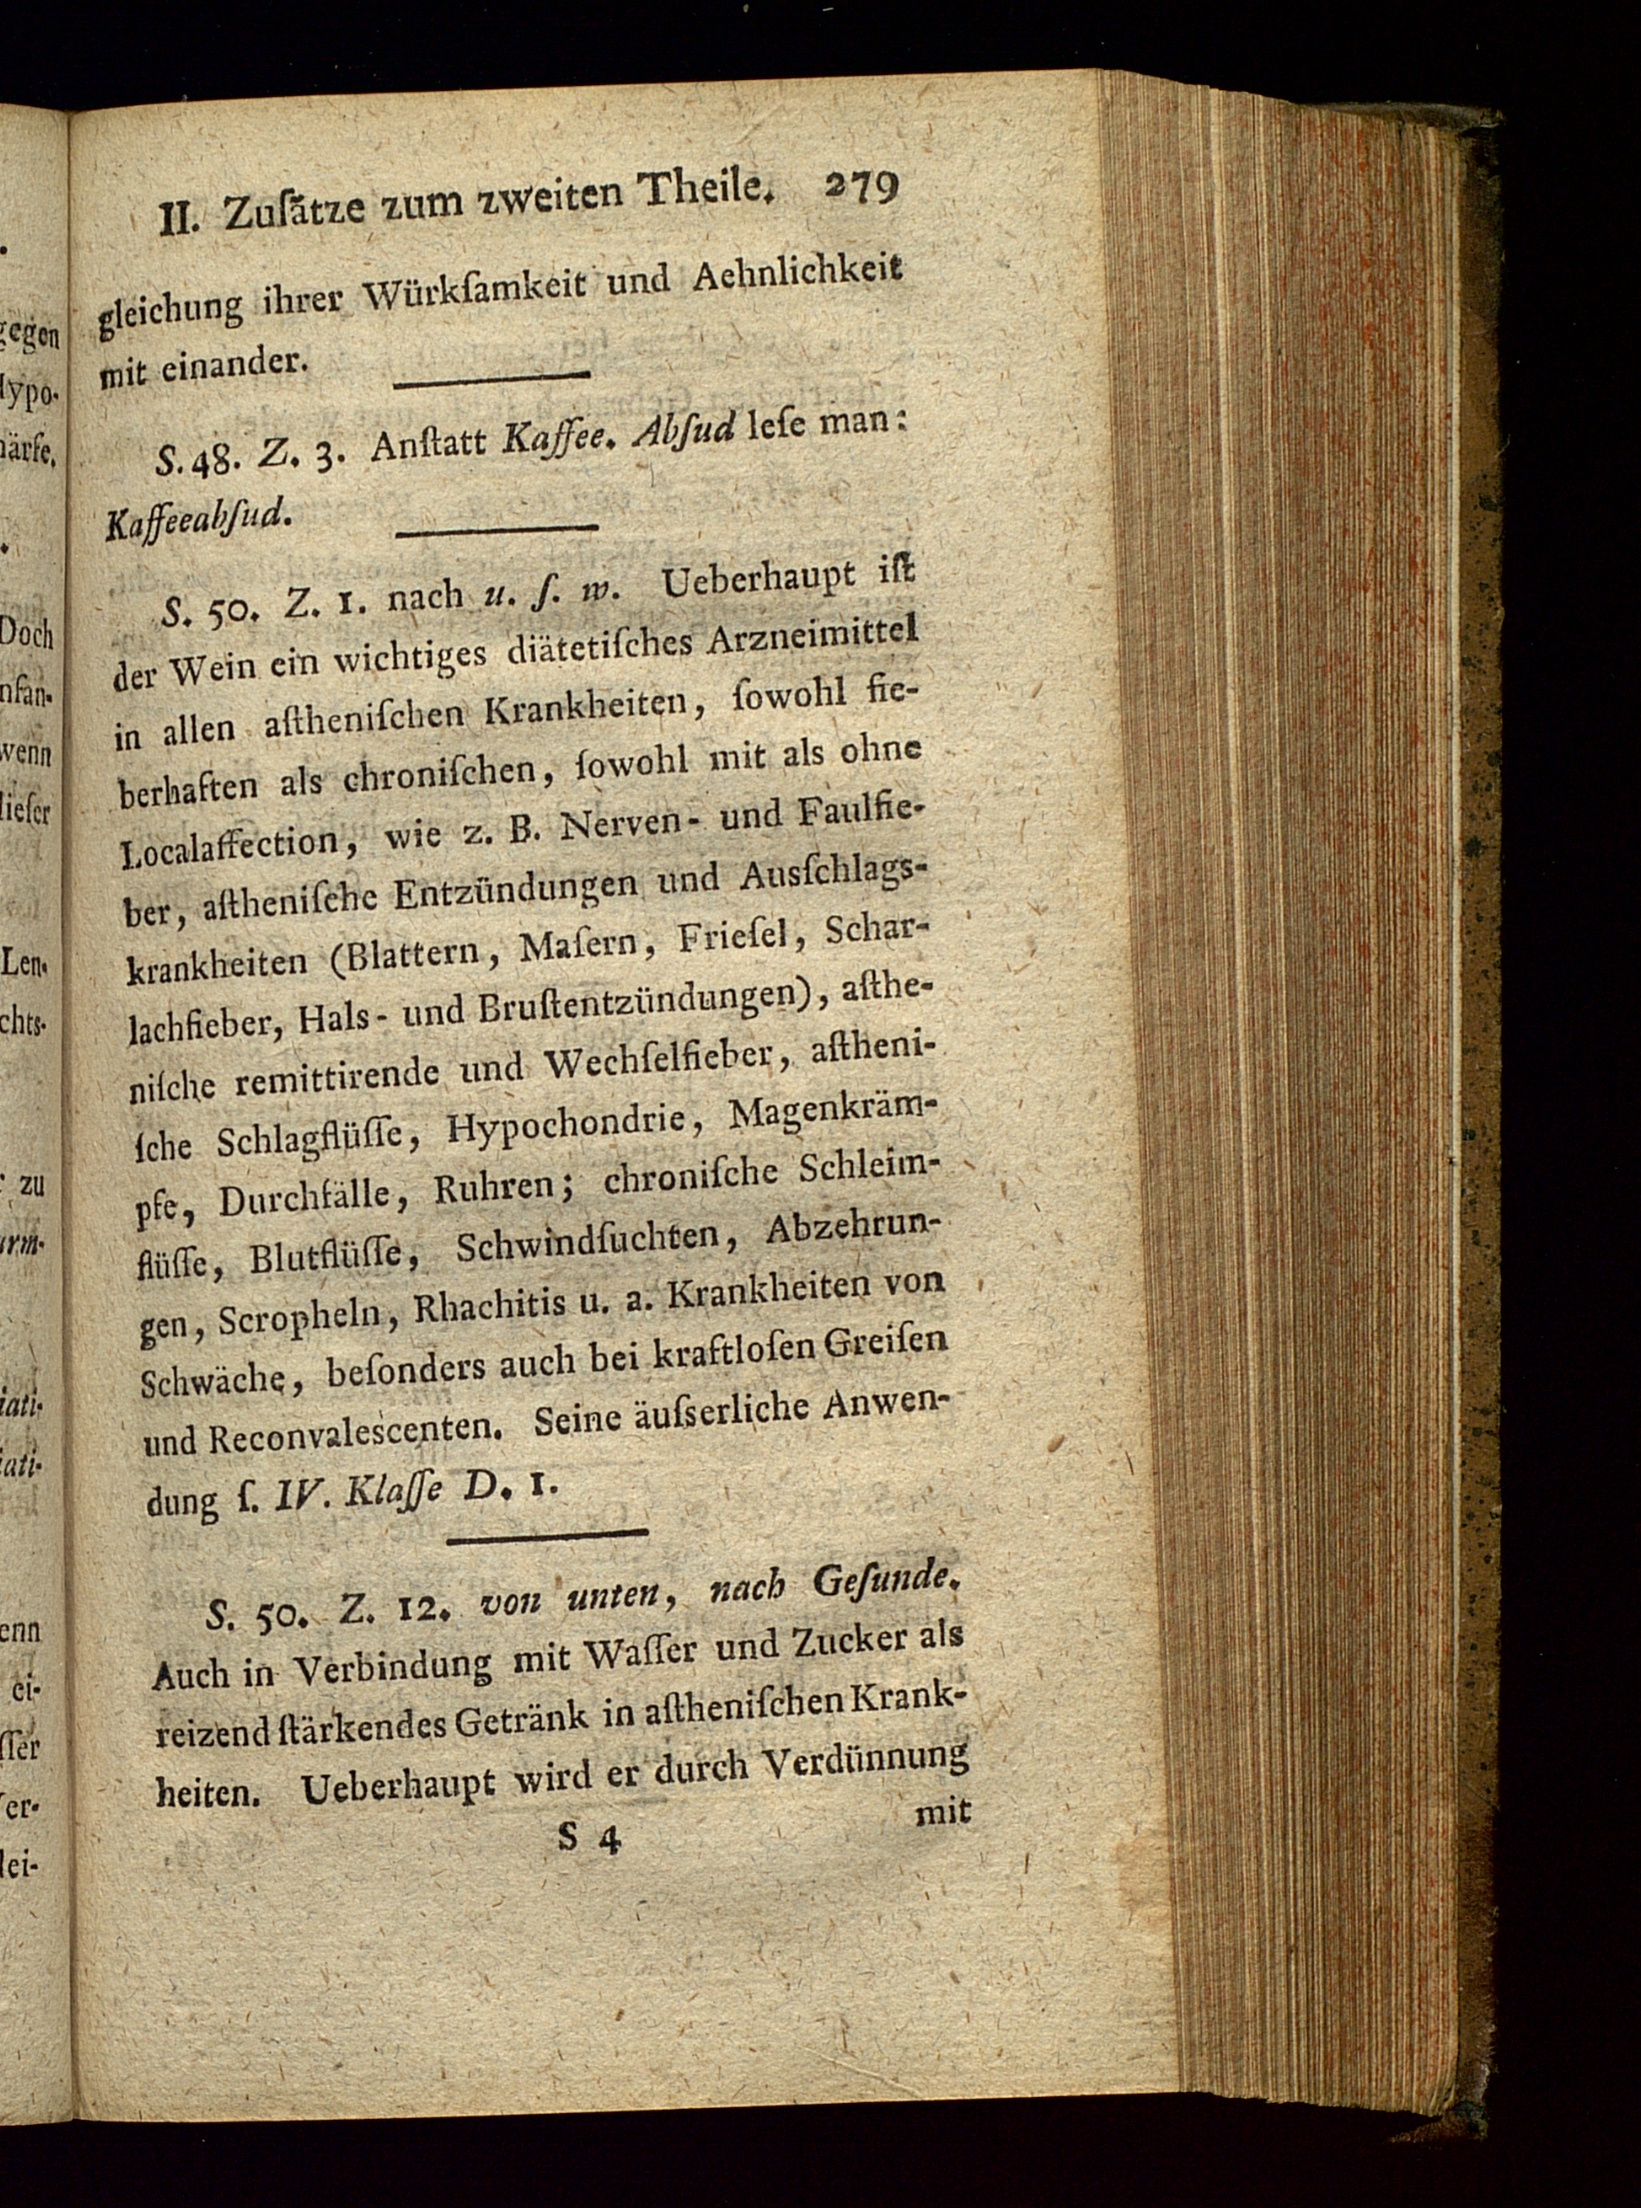 II. Zuſätze zum zweiten Theile. 279
gleichung ihrer Würkſamkeit und Aehnlichkeit
mit einander.
S. 48. Z. 3. Anſtatt Kaffee. Abſud leſe man:
Kaffeeabſud.
S. 50. Z. 1. nach u. ſ. w. Ueberhaupt iſt
der Wein ein wichtiges diätetiſches Arzneimittel
in allen aſtheniſchen Krankheiten, ſowohl fie-
berhaften als chroniſchen, ſowohl mit als ohne
Localaffection, wie z. B. Nerven- und Faulfie-
ber, aſtheniſche Entzündungen und Ausſchlags-
krankheiten (Blattern, Maſern, Frieſel, Schar-
lachfieber, Hals- und Bruſtentzündungen), aſthe-
niſche remittirende und Wechſelfieber, aſtheni-
ſche Schlagflüſſe, Hypochondrie, Magenkräm-
pfe, Durchfälle, Ruhren; chroniſche Schleim-
flüſſe, Blutflüſſe, Schwindſuchten, Abzehrun-
gen, Scropheln, Rhachitis u. a. Krankheiten von
Schwäche, beſonders auch bei kraftloſen Greiſen
und Reconvalescenten. Seine äuſserliche Anwen-
dung ſ. IV. Klaſſe D. 1.
S. 50. Z. 12. von unten, nach Geſunde.
Auch in Verbindung mit Waſſer und Zucker als
reizend ſtärkendes Getränk in aſtheniſchen Krank-
heiten. Ueberhaupt wird er durch Verdünnung
S 4 mit